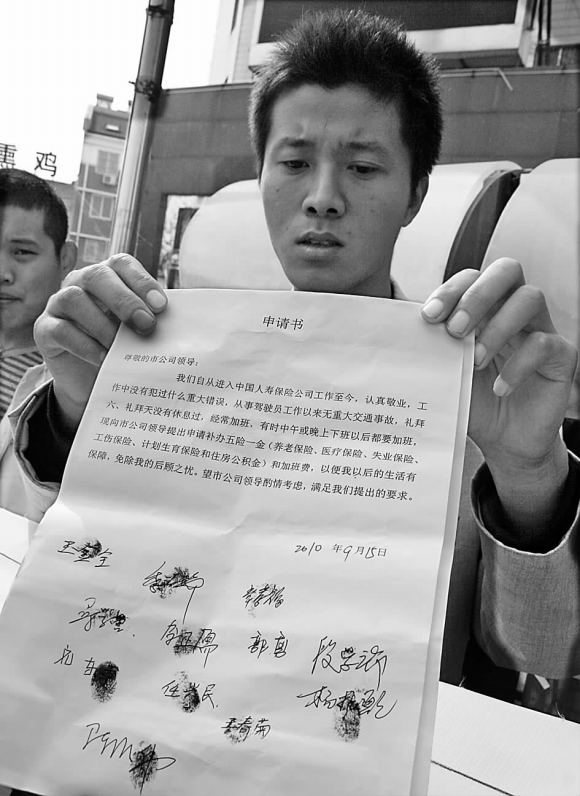 熏鸡
申请书
尊敬的市公司领导：
我们自从进入中国人寿保险公司工作至今，认真敬业，工
作中没有犯过什么重大错误，从事驾驶员工作以来无重大交通事故，礼拜
六、礼拜天没有休息过，经常加班，有时中午或晚上下班以后都要加班，
现向市公司领导提出申请补办五险一金（养老保险、医疗保险、失业保险、
工伤保险、计划生育保险和住房公积金）和加班费，以便我以后的生活有
保障，免除我的后顾之忧。望市公司领导酌情考虑，满足我们提出的要求。
2010 年9月15日